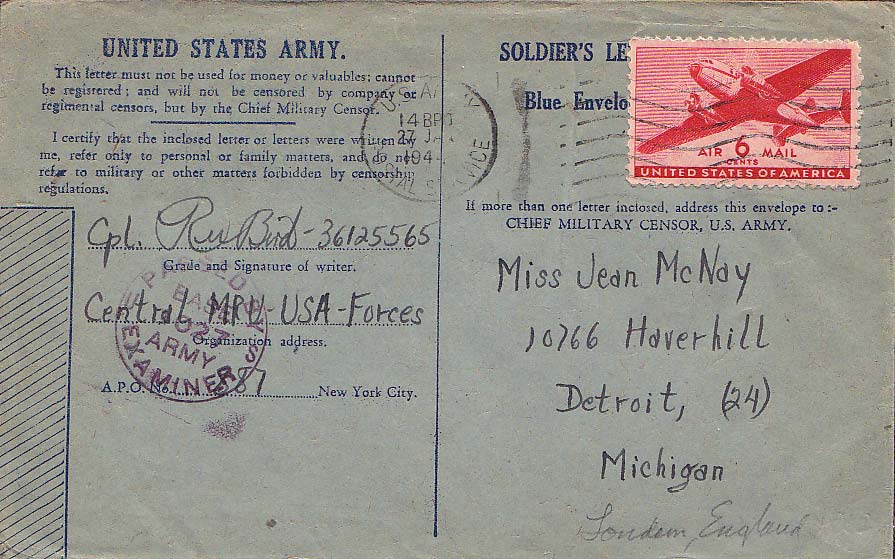 UNITED STATES ARMY.
This letter must not be used for money or valuables; cannot
be registered; and will not be censored by company or
regimental censors, but by the Chief Military Censor.
I certify that the inclosed letter or letters were written by
me, refer only to personal or family matters, and do not
refer to military or other matters forbidden by censorship
regulations.
Cpl. Bird - 36125565
Grade and Signature of writer.
Central MPU - USA - Forces
Organization address.
A.P.O. No. 887 New York City.
PASSED BY
BASE
ARMY
EXAMINER
SOLDIER'S
Blue
14
27
AIR 6 MAIL
CENTS
UNITED STATES OF AMERICA
If more than one letter inclosed, address this envelope to :-
CHIEF MILITARY CENSOR, U.S. ARMY.
Miss Jean McNay
10766 Haverhill
Detroit, (24)
Michigan
London, England